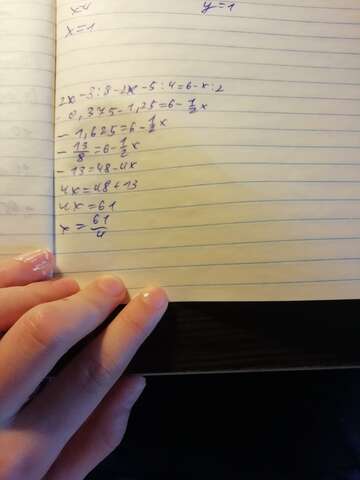 x=1
y=1
x=1
2x-3:8-2x-5:4=6-x:2
-0,375-1,25=6-\frac{1}{2}x
-1,625=6-\frac{1}{2}x
-\frac{13}{8}=6-\frac{1}{2}x
-13=48-4x
4x=48+13
4x=61
x=\frac{61}{4}